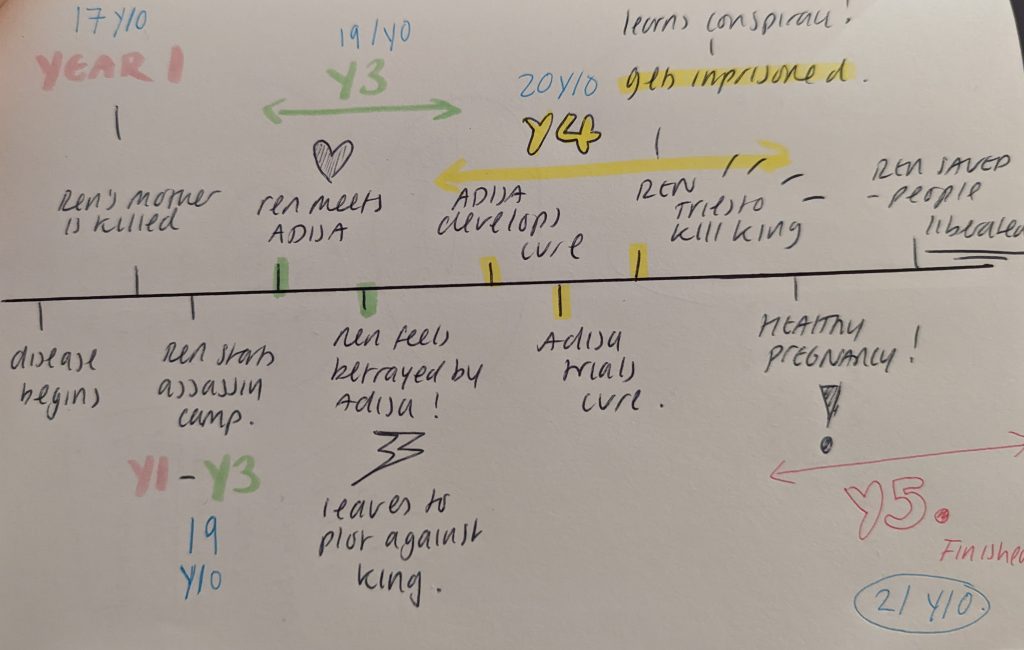 17 Y/O
YEAR 1
Ren's mother
is killed
19/YO
Y3
ren meets
ADIJA
20 Y/O
Y4
ADIJA
develops
cure
learns conspiracy!
gets inprisoned.
REN
Tries to
kill king
REN SAVED
- people
liberated
disease
begins
Ren starts
assassin
camp.
Y1 - Y3
19
Y/O
Ren feels
betrayed by
Adija!
leaves to
plot against
king.
Adija
trials
cure.
HEALTHY
PREGNANCY!
Y5.
Finished
21 Y/O.